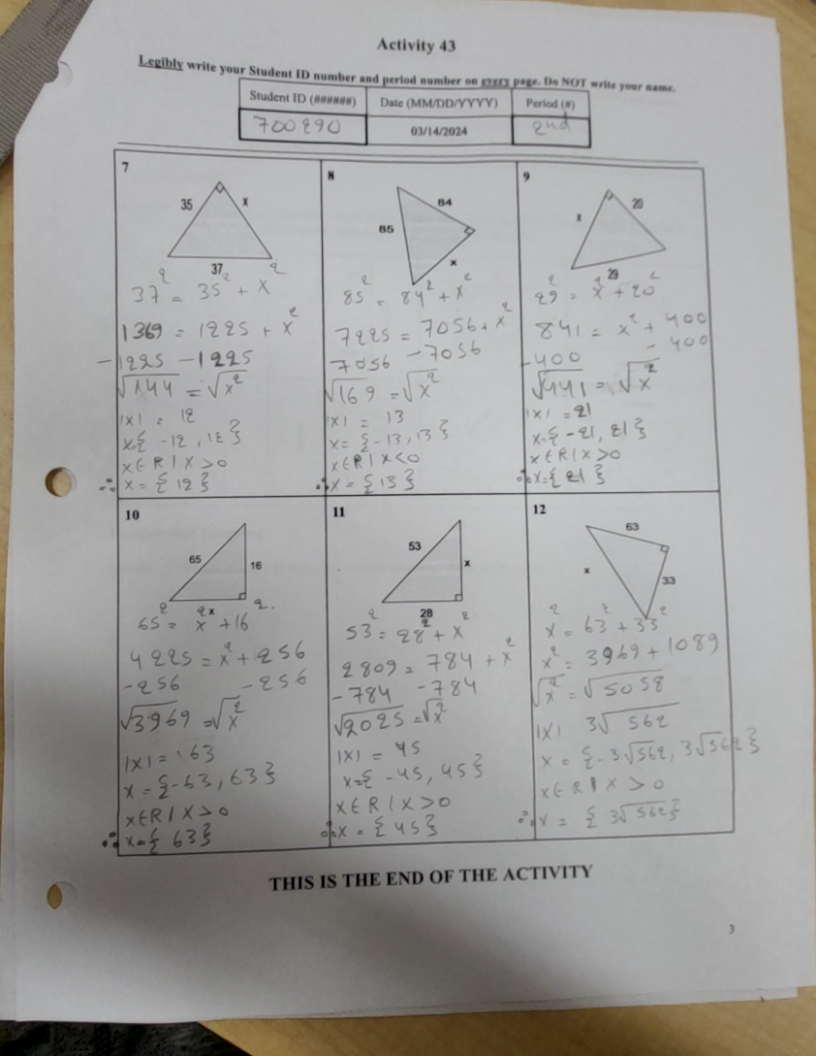 Activity 43
Legibly write your Student ID number and period number on every page. Do NOT write your name.
Student ID (######) Date (MM/DD/YYYY) Period (#)
700290 03/14/2024 2nd
7
35 x
37
37² = 35² + x²
1369 = 1225 + x²
-1225 -1225
√144 = √x²
|x| = 12
x={ -12, 12 }
x∈R | x>0
∴ x = {12}
8
84
85
x
85² = 84² + x²
7225 = 7056 + x²
7056 -7056
√169 = √x²
|x| = 13
x= {-13, 13}
x∈R | x<0
∴ x = {13}
9
x 20
29
29² = x² + 20²
841 = x² + 400
-400 - 400
√441 = √x²
|x| = 21
x={-21, 21}
x∈R | x>0
∴ x={21}
10
65 16
x
65² = x² + 16²
4225 = x² + 256
-256 -256
√3969 = √x²
|x| = 63
x={-63, 63}
x∈R | x>0
∴ x={63}
11
53 x
28
53² = 28² + x²
2809 = 784 + x²
-784 -784
√2025 = √x²
|x| = 45
x={-45, 45}
x∈R | x>0
∴ x = {45}
12
63
x 33
x² = 63² + 33²
x² = 3969 + 1089
√x² = √5058
|x| 3√562
x = {-3√562, 3√562}
x∈R | x>0
∴ x = {3√562}
THIS IS THE END OF THE ACTIVITY
3